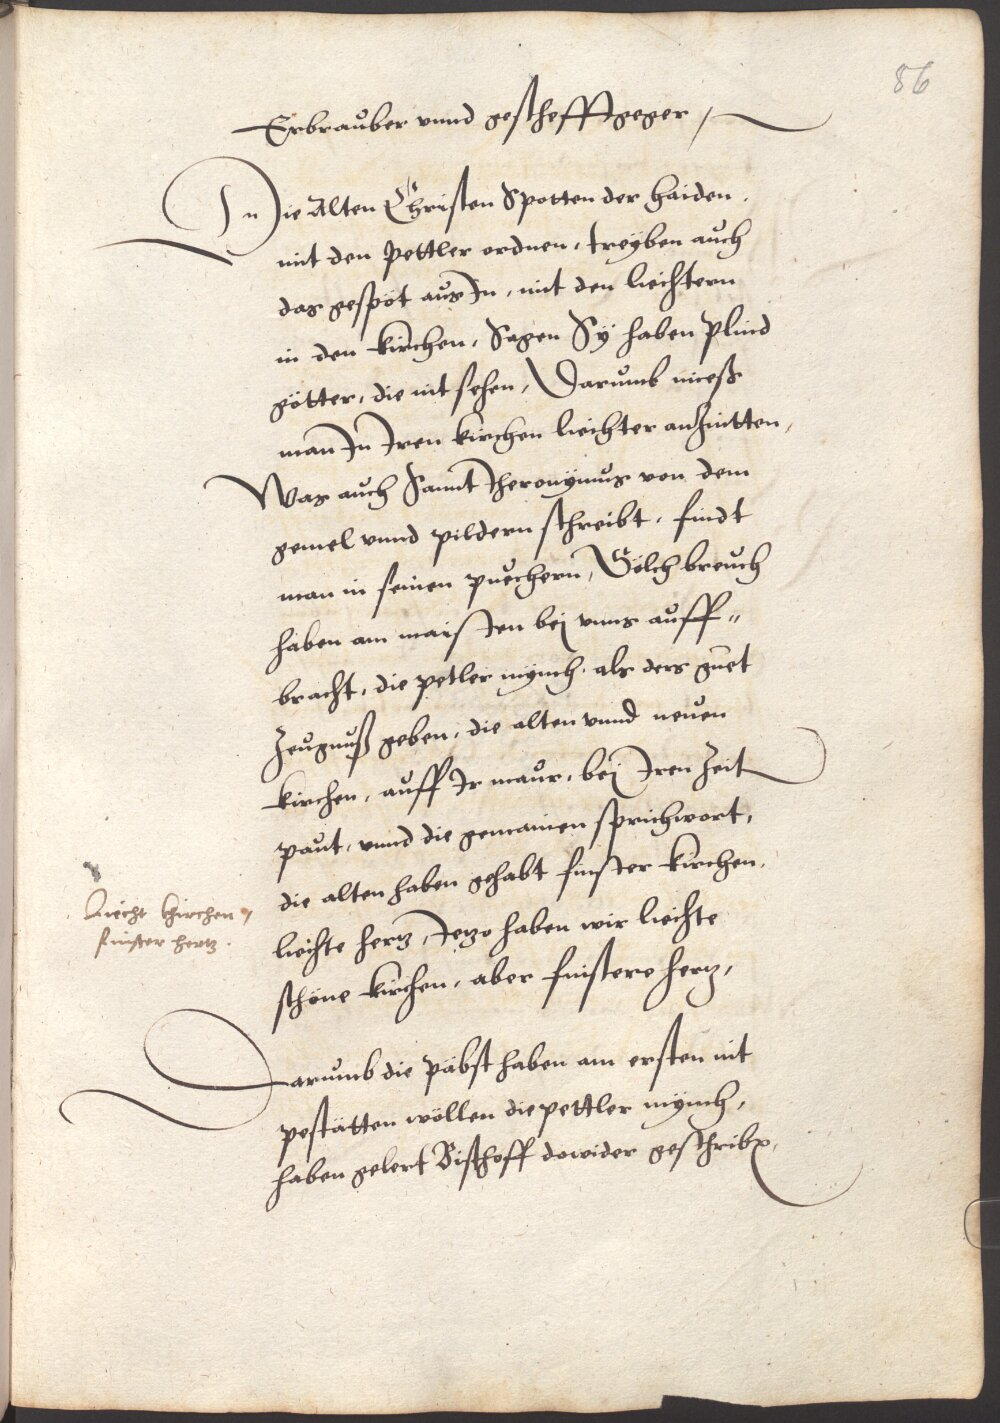 86
Erbrauber vnnd geschefftgeger /
Die Alten Christen Spotten der haiden.
mit den Pettler ordnen, treyben auch
das gespöt aus In, mit den liechtern
in den kirchen, Sagen Sÿ haben plind
götter, die nit sehen, Darumb mueß
man In Iren kirchen liechter anzintten,
Was auch Sannt Iheronÿmus von dem
gemel vnnd pildern schreibt, findt
man in seinen puechern, Sölch breuch
haben am maisten bei vnns auff„
bracht, die petler mÿnch, als ders guet
Zeugnuß geben, die alten vnnd neuen
kirchen, auff Ir maur, bei Iren Zeit
paut, vnnd die gemainen sprichwort,
die alten haben gehabt finster kirchen,
liechte hertz, Ietzo haben wir liechte
schöne kirchen, aber finstere hertz,
Liecht khirchen
finster hertz.
Darumb die päbst haben am ersten nit
pestätten wöllen die pettler mÿnch,
haben gelert Bischoff dowider geschriben,